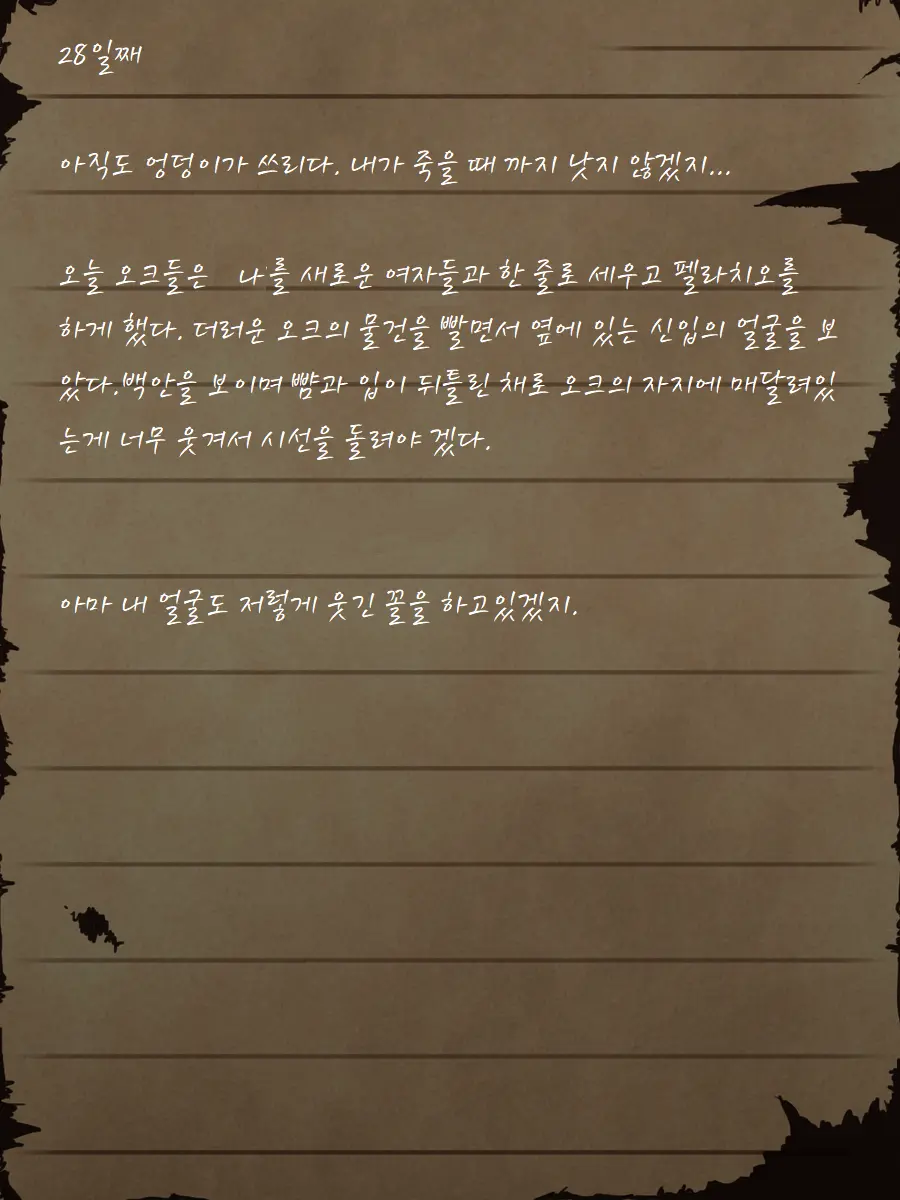 28일째
아직도 엉덩이가 쓰리다. 내가 죽을 때 까지 낫지 않겠지...
오늘 오크들은 나를 새로운 여자들과 한 줄로 세우고 펠라치오를
하게 했다. 더러운 오크의 물건을 빨면서 옆에 있는 신입의 얼굴을 보
았다.백안을 보이며 뺨과 입이 뒤틀린 채로 오크의 자지에 매달려있
는게 너무 웃겨서 시선을 돌려야 겠다.
아마 내 얼굴도 저렇게 웃긴 꼴을 하고있겠지.